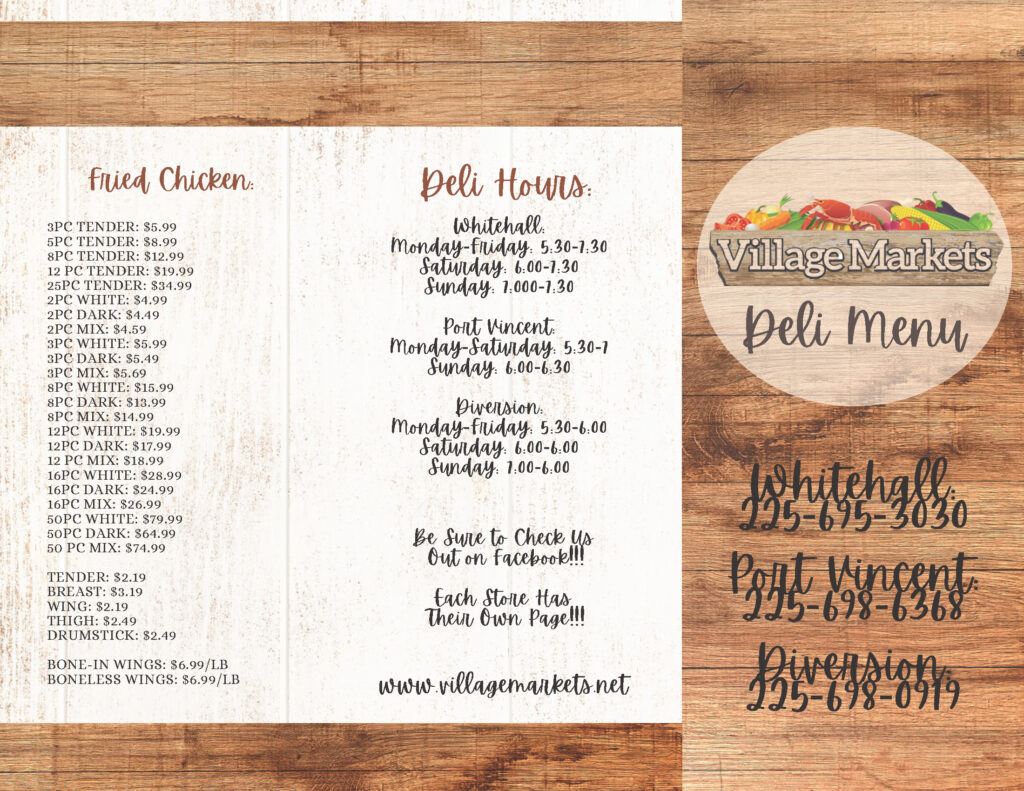 Fried Chicken:
3PC TENDER: $5.99
5PC TENDER: $8.99
8PC TENDER: $12.99
12 PC TENDER: $19.99
25PC TENDER: $34.99
2PC WHITE: $4.99
2PC DARK: $4.49
2PC MIX: $4.59
3PC WHITE: $5.99
3PC DARK: $5.49
3PC MIX: $5.69
8PC WHITE: $15.99
8PC DARK: $13.99
8PC MIX: $14.99
12PC WHITE: $19.99
12PC DARK: $17.99
12 PC MIX: $18.99
16PC WHITE: $28.99
16PC DARK: $24.99
16PC MIX: $26.99
50PC WHITE: $79.99
50PC DARK: $64.99
50 PC MIX: $74.99
TENDER: $2.19
BREAST: $3.19
WING: $2.19
THIGH: $2.49
DRUMSTICK: $2.49
BONE-IN WINGS: $6.99/LB
BONELESS WINGS: $6.99/LB
Deli Hours:
Whitehall:
Monday-Friday: 5:30-7:30
Saturday: 6:00-7:30
Sunday: 7:000-7:30
Port Vincent:
Monday-Saturday: 5:30-7
Sunday: 6:00-6:30
Diversion:
Monday-Friday: 5:30-6:00
Saturday: 6:00-6:00
Sunday: 7:00-6:00
Be Sure to Check Us
Out on Facebook!!!
Each Store Has
Their Own Page!!!
www.villagemarkets.net
Village Markets
Deli Menu
Whitehall:
225-695-3030
Port Vincent:
225-698-6368
Diversion:
225-698-0919